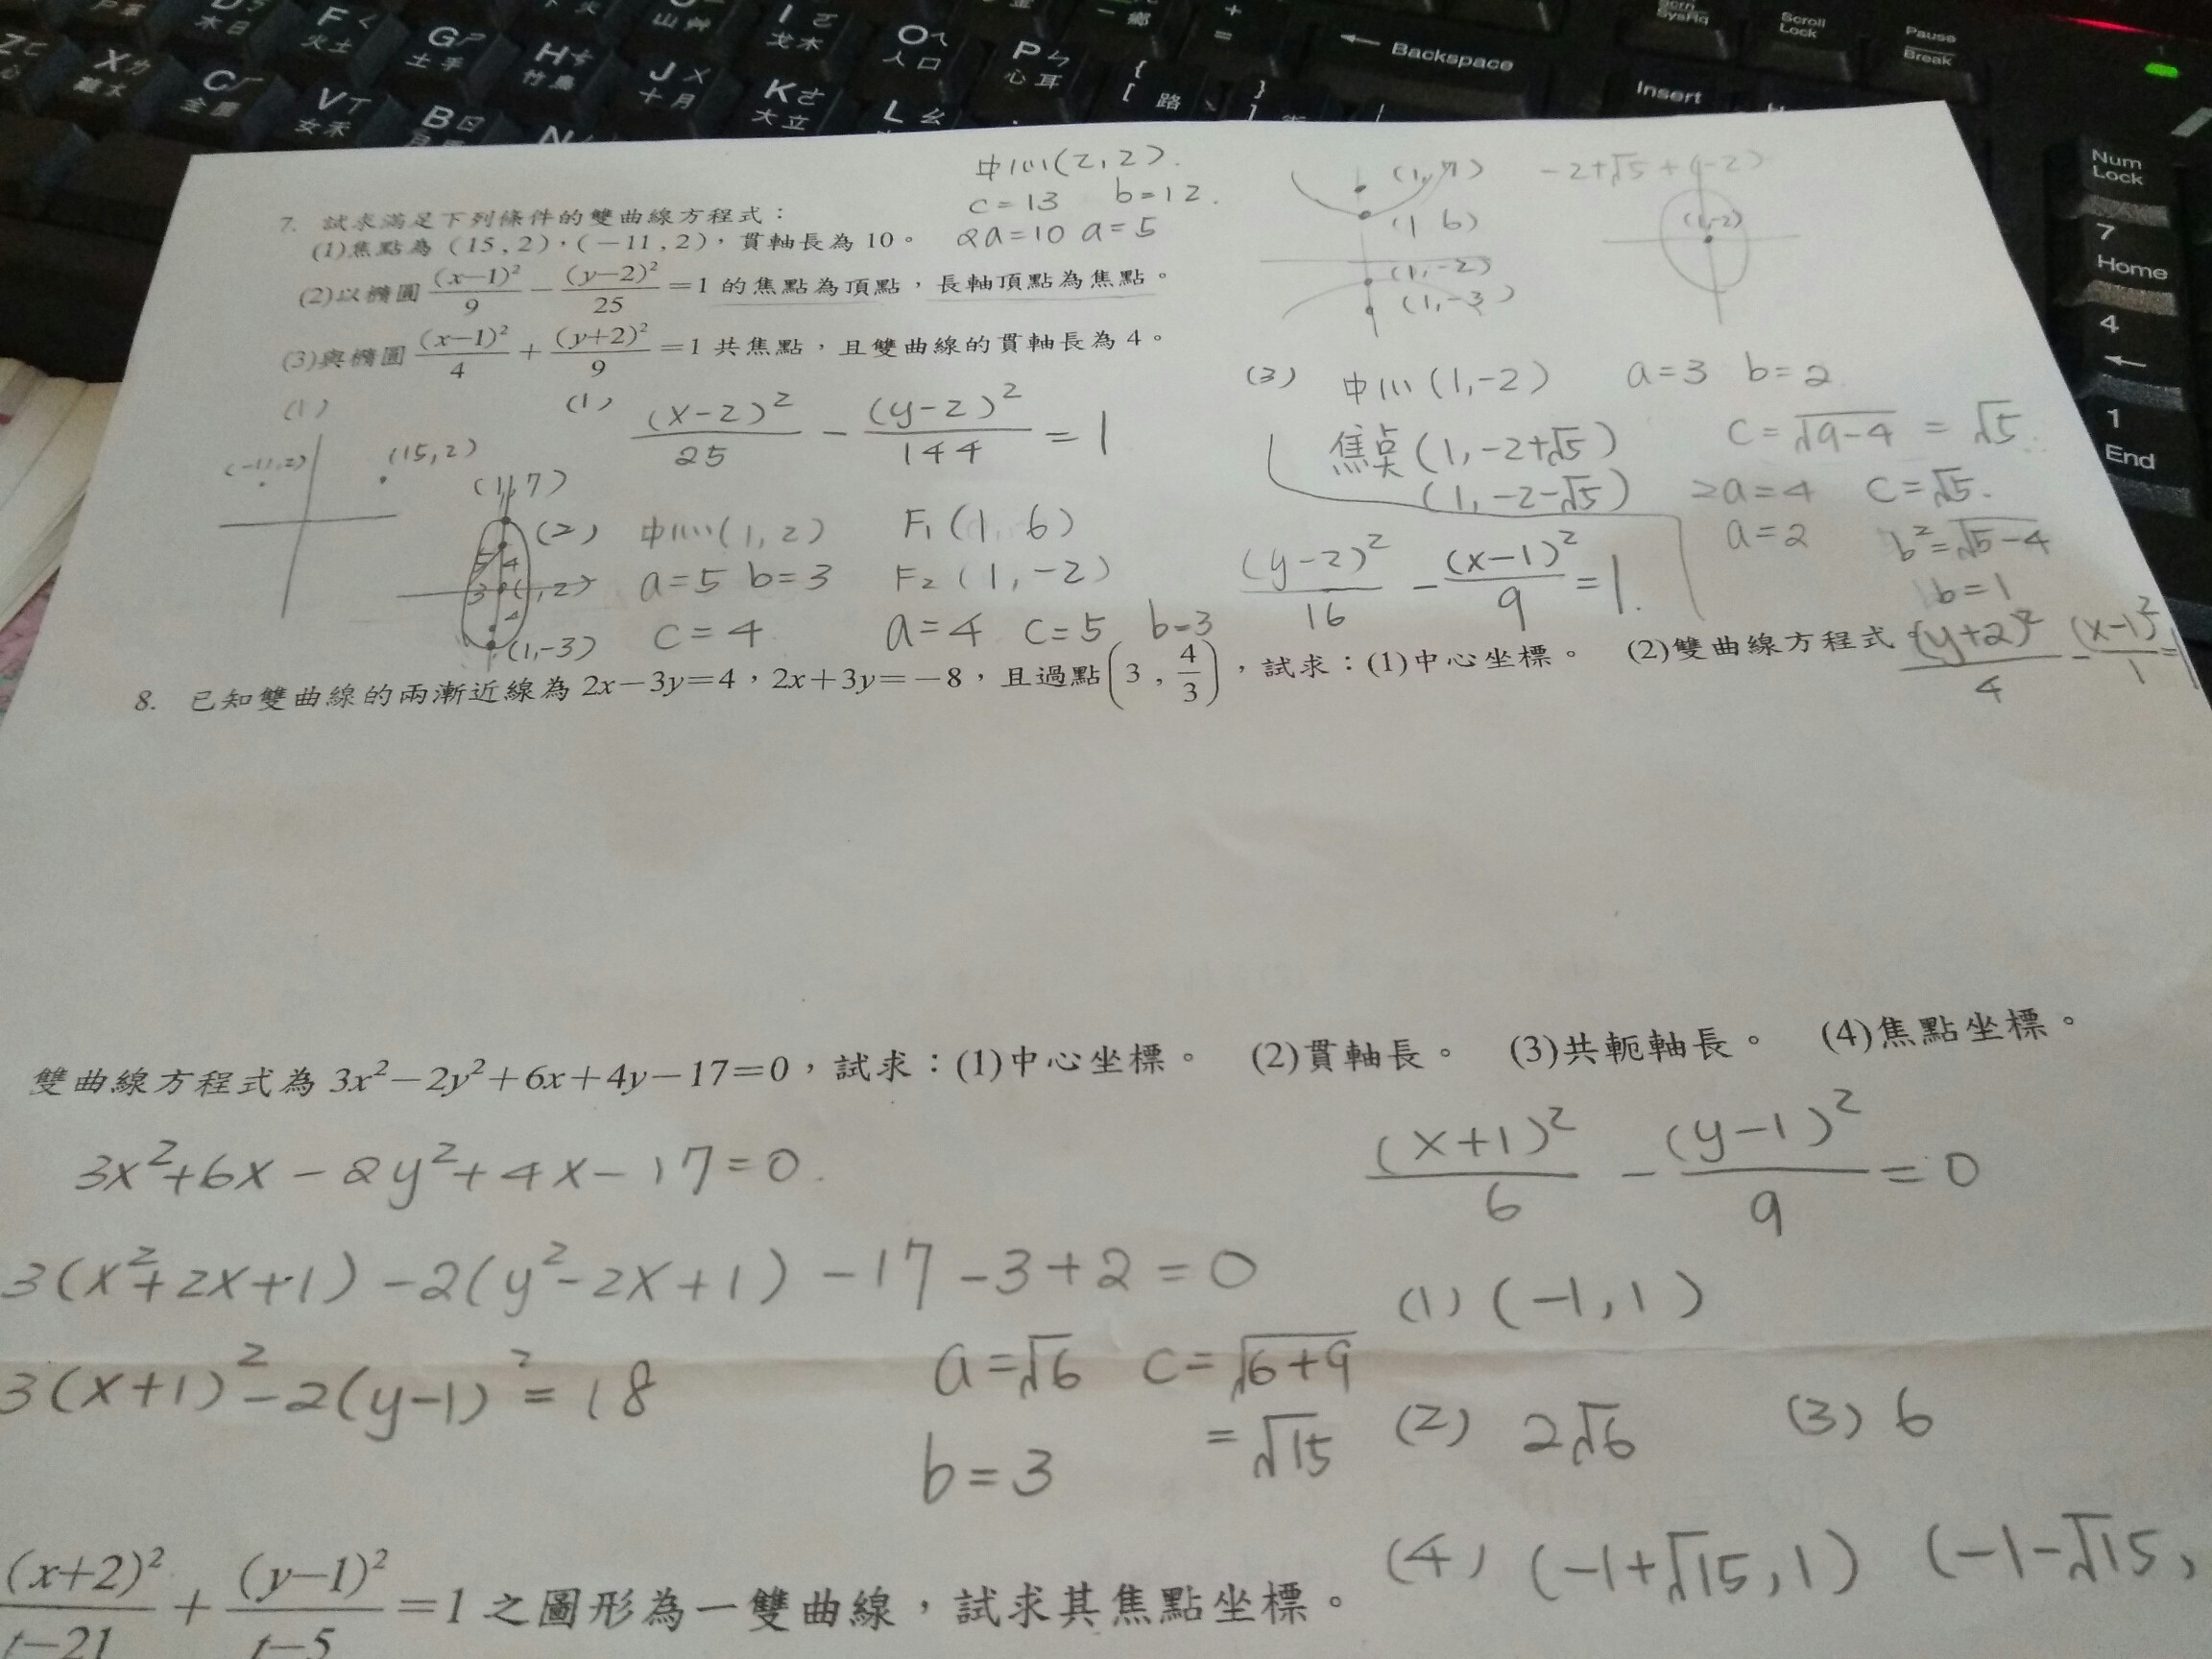 Backspace
Scroll Lock
Pause Break
Insert
Num Lock
7 Home
4
1 End
中心(2,2).
c=13 b=12.
2a=10 a=5
7. 試求滿足下列條件的雙曲線方程式：
(1)焦點為(15,2),(-11,2)，貫軸長為10。
(2)以橢圓 (x-1)²/9 - (y-2)²/25 =1 的焦點為頂點，長軸頂點為焦點。
(3)與橢圓 (x-1)²/4 + (y+2)²/9 =1 共焦點，且雙曲線的貫軸長為4。
(1,7)
(1 6)
(1,-2)
(1,-3)
-2+√5+(-2)
(1,-2)
(1)
(-11,2)
(15,2)
(1) (x-2)²/25 - (y-2)²/144 = 1
(1,7)
5 4
3
4
(1,-3)
(2) 中心(1,2) F₁(1, 6)
a=5 b=3 F₂(1,-2)
c=4 a=4 c=5 b=3
(y-2)²/16 - (x-1)²/9 = 1.
(3) 中心(1,-2) a=3 b=2
焦点(1,-2+√5) c=√9-4 = √5.
(1,-2-√5) 2a=4 c=√5.
a=2 b²=√5-4
b=1
(y+2)²/4 - (x-1)²/1 = 1
8. 已知雙曲線的兩漸近線為 2x-3y=4，2x+3y=-8，且過點(3, 4/3)，試求：(1)中心坐標。 (2)雙曲線方程式
雙曲線方程式為 3x²-2y²+6x+4y-17=0，試求：(1)中心坐標。 (2)貫軸長。 (3)共軛軸長。 (4)焦點坐標。
3x²+6x-2y²+4x-17=0.
3(x²+2x+1)-2(y²-2x+1)-17-3+2=0
3(x+1)²-2(y-1)²=18
a=√6 c=√6+9
b=3 =√15
(x+1)²/6 - (y-1)²/9 = 0
(1) (-1,1)
(2) 2√6 (3) 6
(4) (-1+√15,1) (-1-√15,
(x+2)²/t-21 + (y-1)²/t-5 =1 之圖形為一雙曲線，試求其焦點坐標。